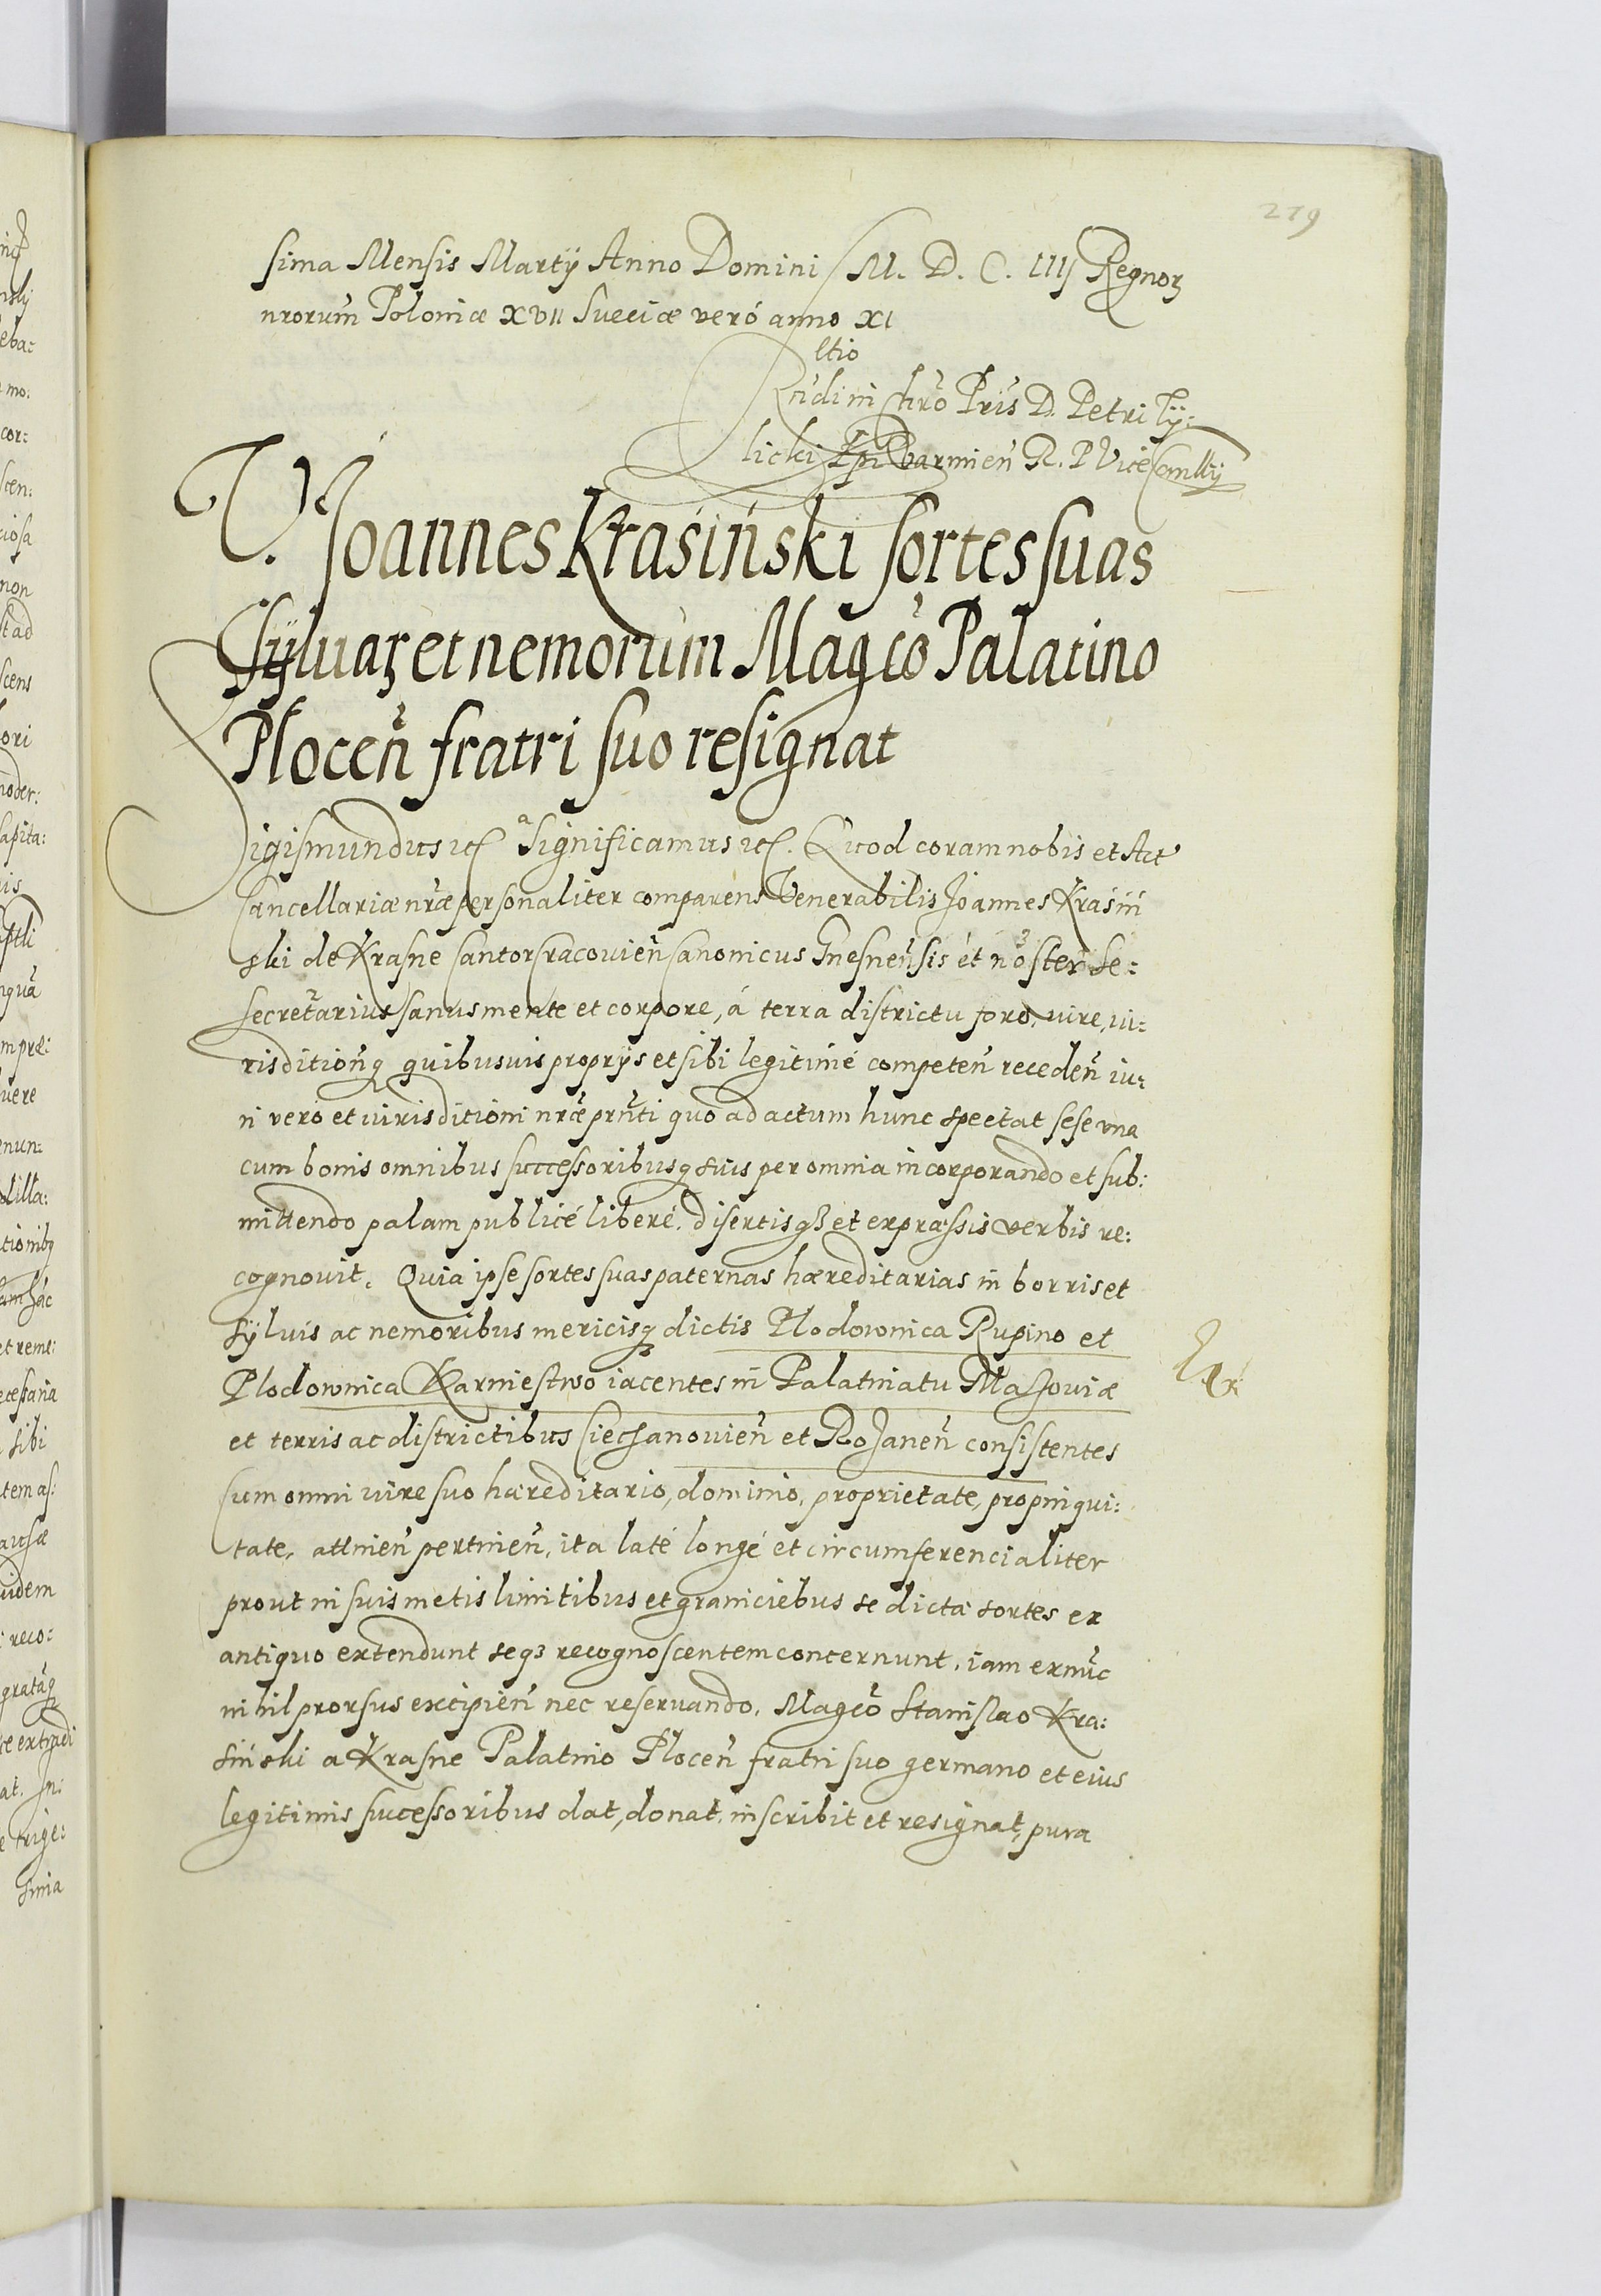 279
sima Mensis Martÿ Anno Domini M. D. C. IIIJ Regnoꝝ
nrorum̃ Poloniæ XVII Sueciæ veró anno XI
ltio
Rn̄di in Chrō Pris D. Petri Tÿ:
licki Epi Varmien̄ R. P Vice Canllrÿ
V. Joannes Krasiński sortes suas
sÿluaꝝ et nemorum Magcō Palatino
Plocen̄ fratri suo resignat
Sigismundus etc Significamus etc. Quod coram nobis et Act
Cancellariæ nr̄æ personaliter comparens Venerabilis Joannes Krasiń
ski de Krasne Cantor Cracovien̄ Canonicus Gnesnen̄sis et noster Se:
secretarius sanus mente et corpore, á terra districtu foro, iure, iu:
risdition̄q quibusuis proprÿs et sibi legitimé competen̄ receden̄ iu:
ri vero et iurisditioni nr̄æ prn̄ti quo ad actum hunc spectat sese vna
cum bonis omnibus successoribusq suis per omnia incorporando et sub:
mittendo palam publicé liberé. disertisqꝫ et expræssis verbis re:
cognouit. Quia ipse sortes suas paternas hæreditarias in borris et
sÿluis ac nemoribus mericisq dictis Plodownica Rupino et
Plodownica Karniestwo iacentes in Palatinatu Masouiæ
et terris ac districtibus Ciechanouien̄ et Rozanen̄ consistentes
Cum omni iure suo hæreditario, dominio, proprietate, propinqui:
tate, attinen̄ pertinen̄, ita laté longé et circumferencialiter
prout in suis metis limitibus et graniciebus se dictæ sortes ex
antiquo extendunt seqꝫ recognoscentem concernunt, iam exnūc
nihil prorsus excipien̄ nec reseruando. Magcō Stanislao Kra:
siński a Krasne Palatino Plocen̄ fratri suo germano et eius
legitimis successoribus dat, donat, inscribit et resignat, pura